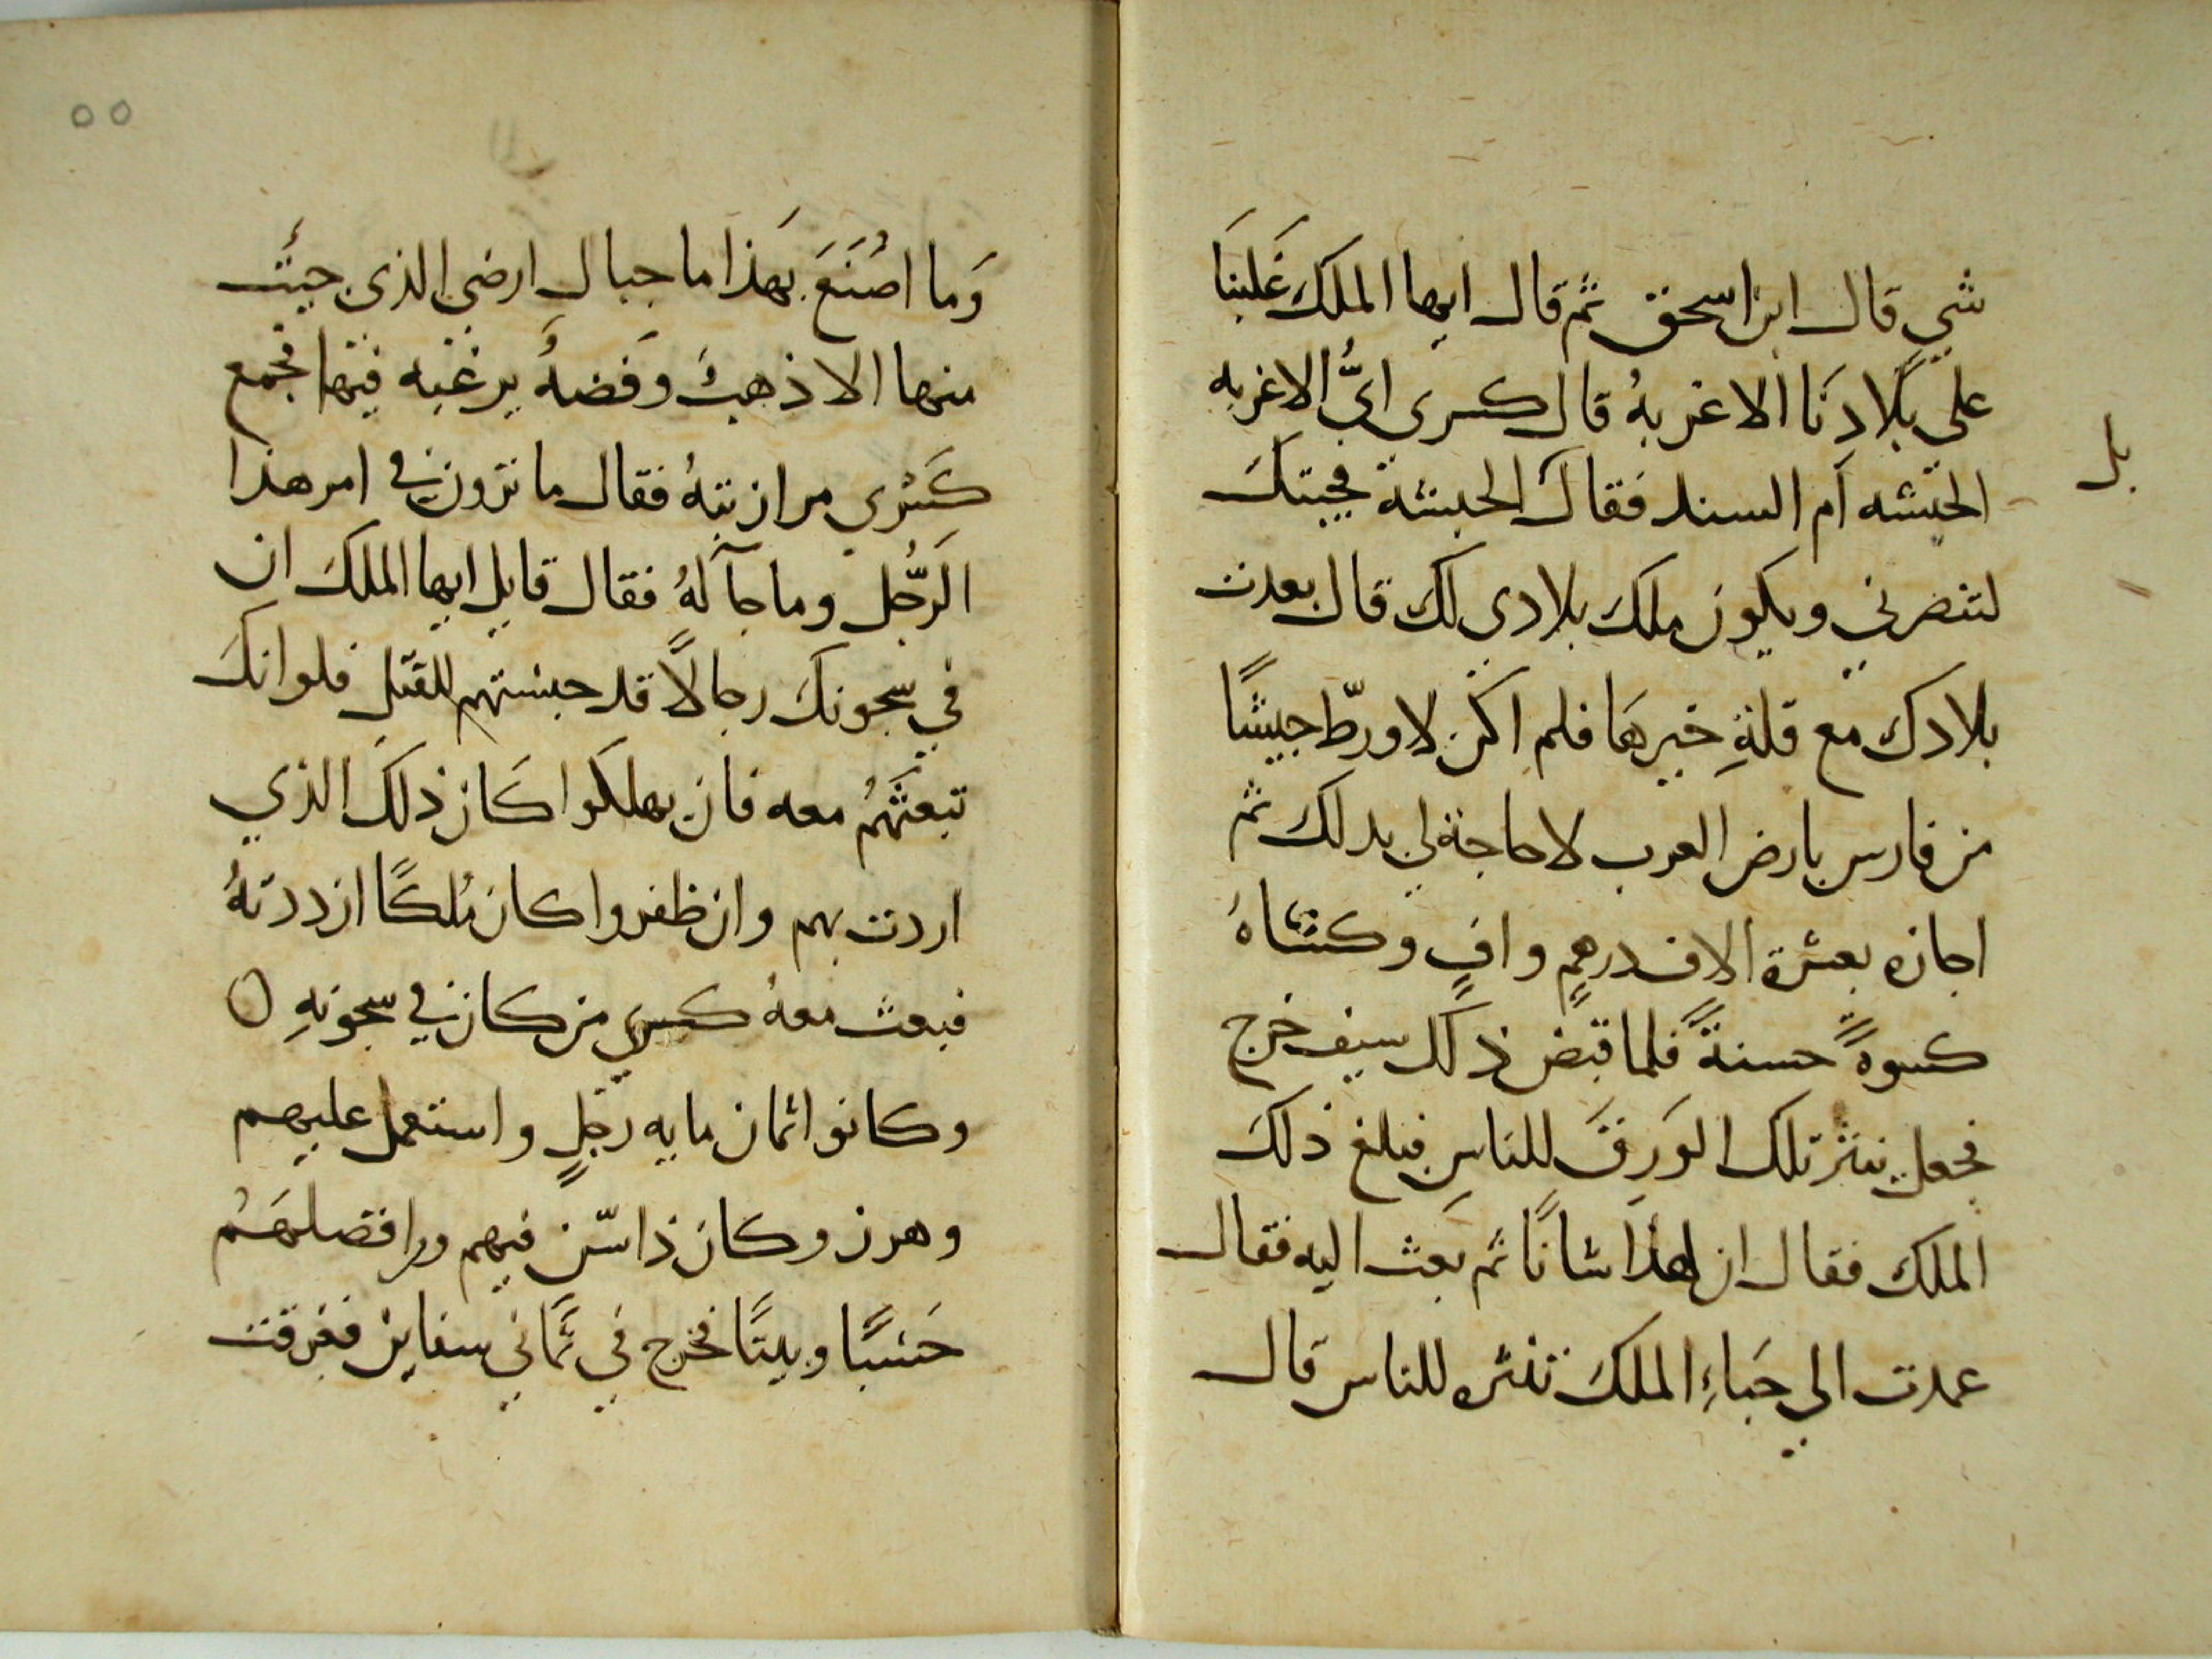 شي قال ابن اسحق ثم قال ايها الملك غَلبتنَا
على بلَادِنَا الاغربهُ قال كسرى ايُّ الاغربه
الحبشه أم السند فقال الحبشة فجيتك
بل
لتنصرني ويكون ملك بلادي لك قال بعدت
بلادك مع قلةِ خيرهَا فلم اكن لاورّط جيشًا
من فارس بارض العرب لا حاجة لي بدلك ثم
اجازه بعشرة الاف درهمٍ وافٍ وكسَاهُ
كسوةً حسنةً فلما قبض ذلك سيف خرج
فجعل ينثر تلك الوَرِقَ للناسِ فبلغ ذلكَ
الملك فقال ان لهذا شانًا ثم بعث اليه فقال
عمدت الي حَباءِ الملكَ تنثره للناس قال
٥٥
وَما اصُنَعَ بهَذا ما جبال ارضي الذى جيَت
منها الا ذهبٌ وَفضهٌ يرغبه فيها فجمع
كَسْرى مرازبتهُ فقال ما ترون في امر هذا
الَرّجُل وما جآ لهُ فقال قايل ايها الملكَ ان
في سجونكَ رجالًا قد حبستهم للقتل فلو انكَ
تبعثَهُمُ معه فان يهلكَوا كَان ذلكَ الذي
اردت بهم وان ظفروا كان مُلكًا ازددتهُ
فبعث معهُ كسري من كان في سجونهِ ٥
وكانوا ثمان مايه رَجلٍ واستعمل عليهم
وهرز وكان ذا سّنٍ فيهم وافضلهَمُ
حَسبًا وبيتًا فخرج في ثَماني سفاين فغرقت